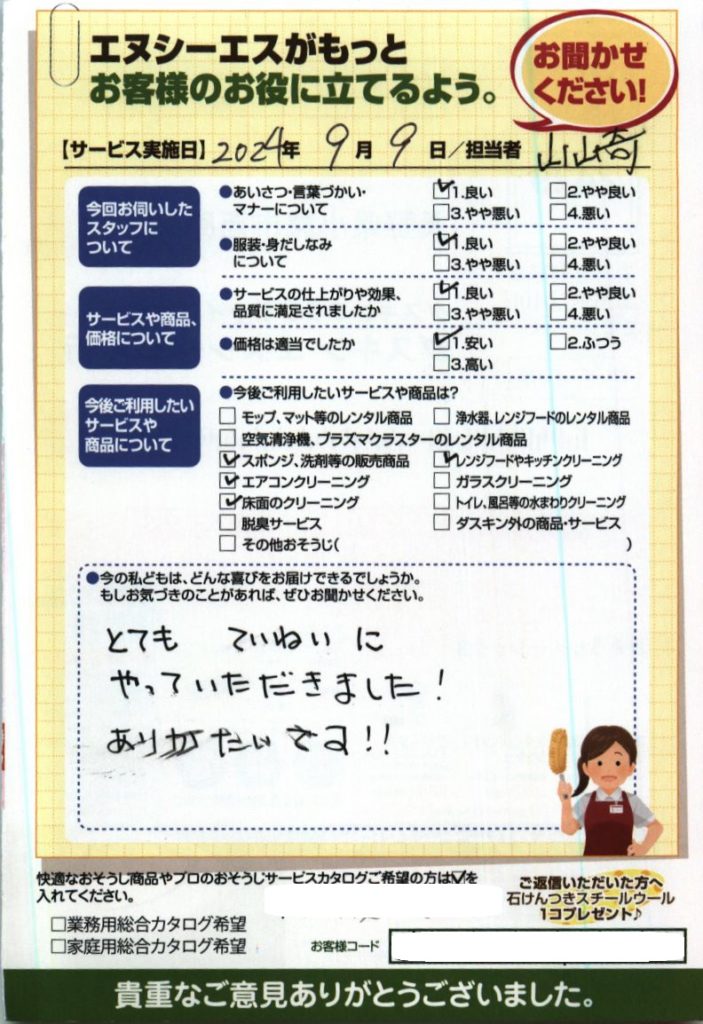 エヌシーエスがもっと
お客様のお役に立てるよう。
お聞かせ
ください!
【サービス実施日】2024年 9月 9日/担当者 山崎
今回お伺いした
スタッフに
ついて
●あいさつ・言葉づかい・
マナーについて
☑1.良い □2.やや良い
□3.やや悪い □4.悪い
●服装・身だしなみ
について
☑1.良い □2.やや良い
□3.やや悪い □4.悪い
サービスや商品、
価格について
●サービスの仕上がりや効果、
品質に満足されましたか
☑1.良い □2.やや良い
□3.やや悪い □4.悪い
●価格は適当でしたか
☑1.安い □2.ふつう
□3.高い
今後ご利用したい
サービスや
商品について
●今後ご利用したいサービスや商品は?
□モップ、マット等のレンタル商品 □浄水器、レンジフードのレンタル商品
□空気清浄機、プラズマクラスターのレンタル商品
☑スポンジ、洗剤等の販売商品 ☑レンジフードやキッチンクリーニング
☑エアコンクリーニング □ガラスクリーニング
☑床面のクリーニング □トイレ、風呂等の水まわりクリーニング
□脱臭サービス □ダスキン外の商品・サービス
□その他おそうじ( )
●今の私どもは、どんな喜びをお届けできるでしょうか。
もしお気づきのことがあれば、ぜひお聞かせください。
とても ていねいに
やっていただきました!
ありがたいです!!
快適なおそうじ商品やプロのおそうじサービスカタログご希望の方は☑を
入れてください。
□業務用総合カタログ希望
□家庭用総合カタログ希望
お客様コード
ご返信いただいた方へ
石けんつきスチールウール
1コプレゼント♪
貴重なご意見ありがとうございました。